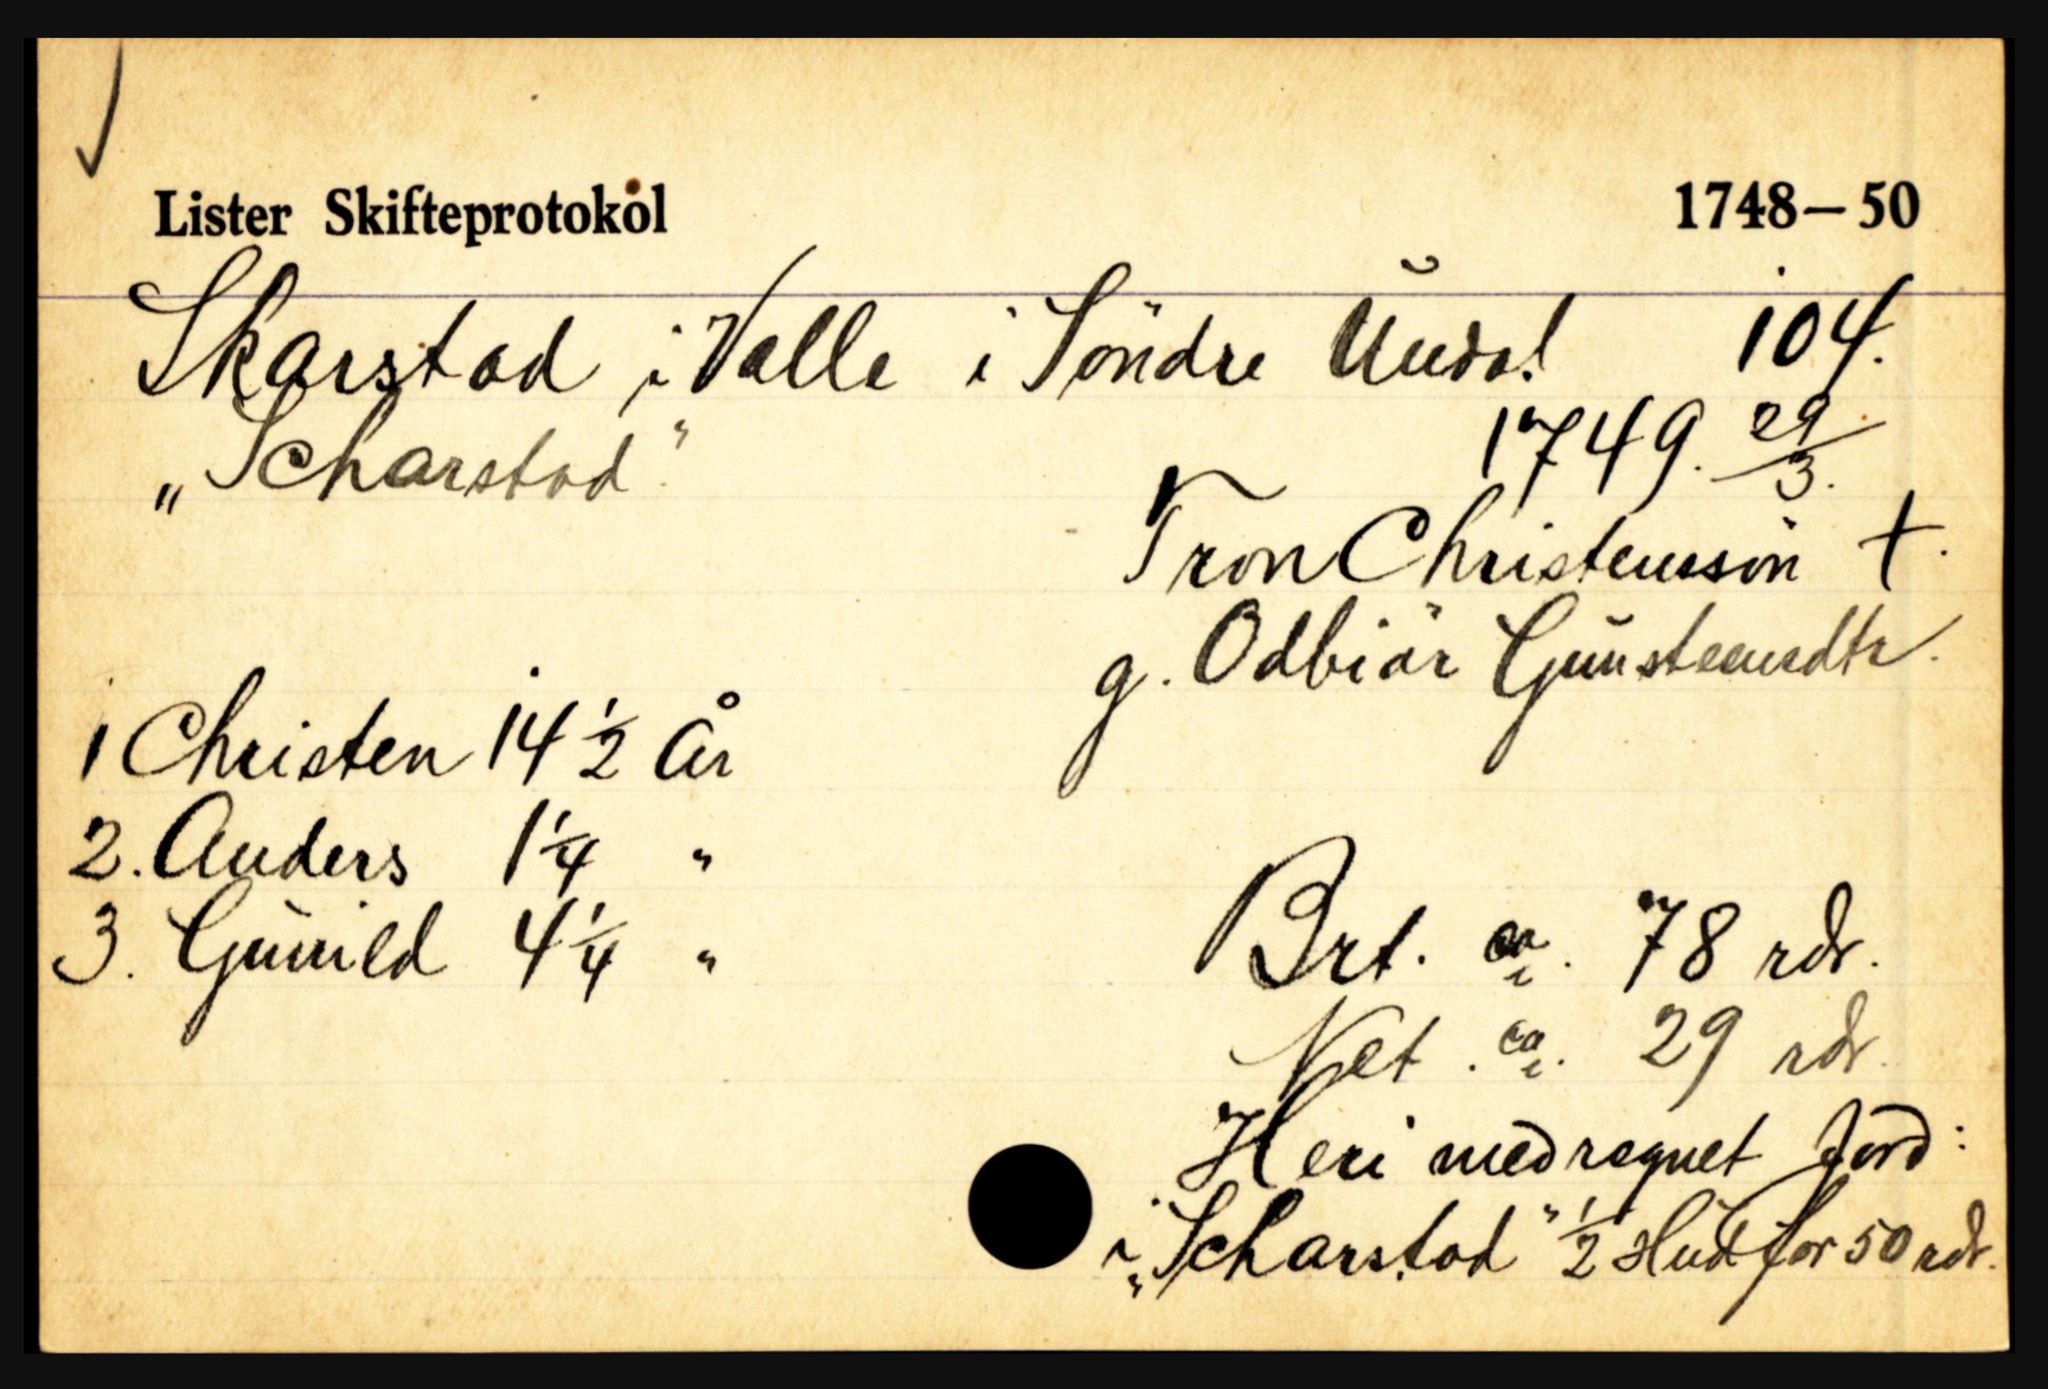 Lister Skifteprotokol 1748–50
Skarstad i Valle i Söndre Undal 104.
„Scharstad" 1749. 29/3.
Tron Christensøn †.
g. Odbiör Gunstensdtr.
1 Christen 14 1/2 År
2. Anders 1 1/4 "
3. Gunild 4 1/4 "
Brt. ca. 78 rdr.
Net. ca. 29 rdr.
Heri medregnet Jord:
i „Scharstad" 1/2 Hud for 50 rdr.